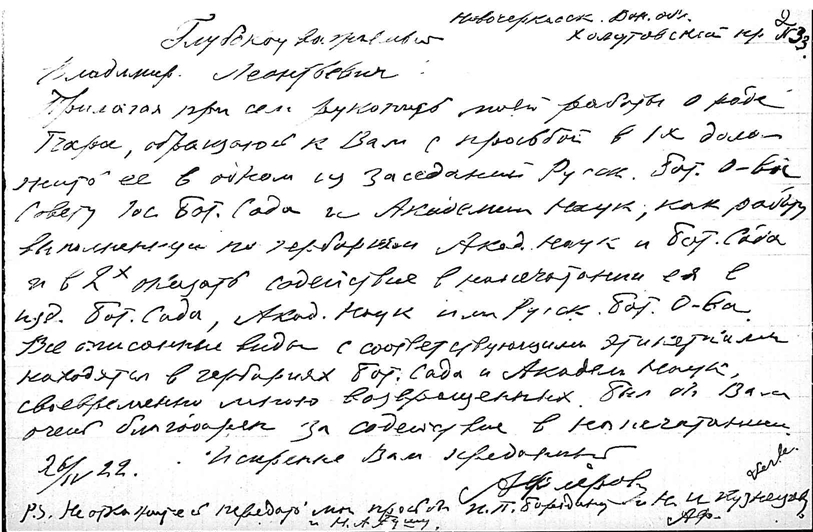 Новочеркасск. Дон. обл.
Глубокоуважаемый
Владимир Леонтьевич!
Прилагая при сем рукопись моей работы о роде
обращаюсь к Вам с просьбой в 1х доло-
жить ее в одном из заседаний Русск. Бот. О-ва
Совету Гос. Бот. Сада и Академии Наук, как работу
выполненную по гербариям Акад. Наук и Бот. Сада
и в 2х оказать содействие в напечатании ея в
изд. Бот. Сада, Акад. Наук или Русск. Бот. О-ва.
Все описанные виды с соответствующими этикетками
находятся в гербариях Бот. Сада и Академ. Наук,
своевременно мною возвращенных. Был бы Вам
очень благодарен за содействие в напечатании.
26/IV 22. Искренне Вам преданный
АФлеров
P.S. Не откажите передать мои просьбы И. П. Бородину и Н. И. Кузнецову
и Н. А. Бушу. АФ.